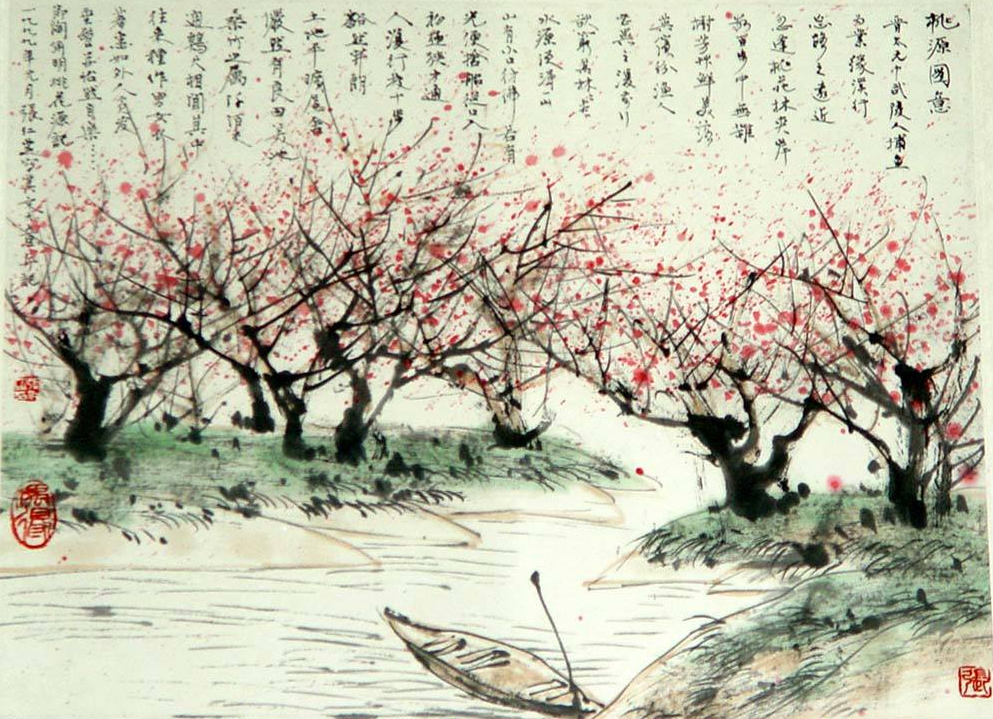 桃源圖意
晉太元中武陵人捕魚
為業緣溪行
忘路之遠近
忽逢桃花林夾岸
數百步中無雜
樹芳艸鮮美落
英繽紛漁人
甚異之復前行
欲窮其林
水源便得山
山有小口彷彿若有
光便捨船從口入
初極狹才通
人復行數十步
豁然開朗
土地平曠屋舍
儼然有良田美池
桑竹之屬阡
通鷄犬相聞其中
往來種作男女衣
著盡如外人黃髮
垂髫並怡然自樂……
陶明桃花源記
一九九九年元月張仁芝寫其文意並記
張